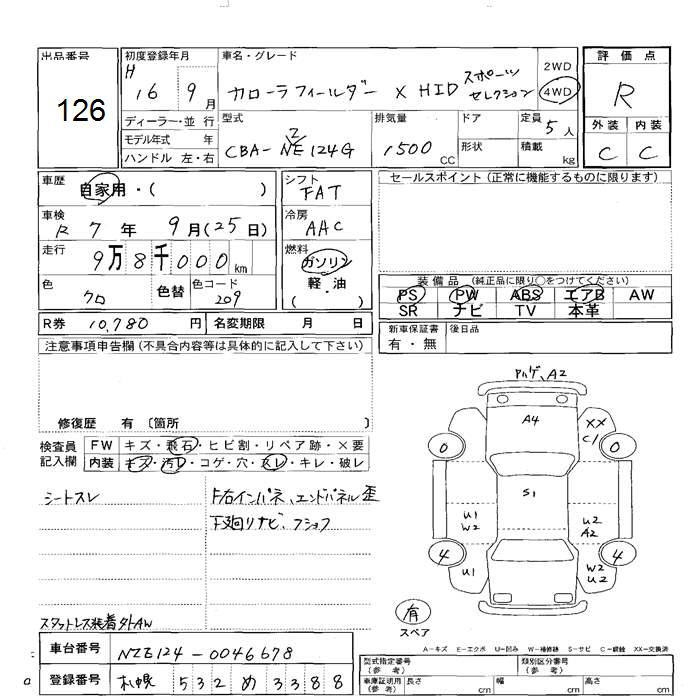 出品番号
126
初度登録年月
H
16 9月
車名・グレード
カローラフィールダー X HID スポーツ
セレクション
2WD
4WD
評価点
R
外装 内装
C C
ディーラー・並行
モデル年式 年
ハンドル 左・右
型式
CBA-NZE124G
排気量
1500 CC
ドア
形状
定員
5人
積載
kg
車歴
自家用・( )
シフト
FAT
車検
R 7年 9月(25日)
冷房
AAC
走行
9万8千000km
燃料
ガソリン
軽・油
( ・ )
色
クロ
色替
色コード
209
R券 10,780 円
名変期限 月 日
セールスポイント(正常に機能するものに限ります)
装備品(純正品に限り○をつけてください)
PS PW ABS エアB AW
SR ナビ TV 本革
新車保証書
有・無
後日品
注意事項申告欄(不具合内容等は具体的に記入して下さい)
修復歴 有〔箇所 〕
検査員
記入欄
FW キズ・飛石・ヒビ割・リペア跡・×要
内装 キズ・汚レ・コゲ・穴・スレ・キレ・破レ
シートスレ
F右インパネ、エンドパネル歪
下廻りサビ、
スタットレス装着外AW
ハゲ、A2
A4
XX
C1
0
0
S1
U1
W2
U2
A2
4
4
U1
W2
U2
有
スペア
A-キズ E-エクボ U-凹み W-補修跡 S-サビ C-腐蝕 XX-交換済
車台番号
NZE124-0046678
登録番号
札幌 532 め 3388
型式指定番号
(参考)
類別区分番号
(参考)
車庫証明用
(参考)
長さ cm
幅 cm
高さ cm